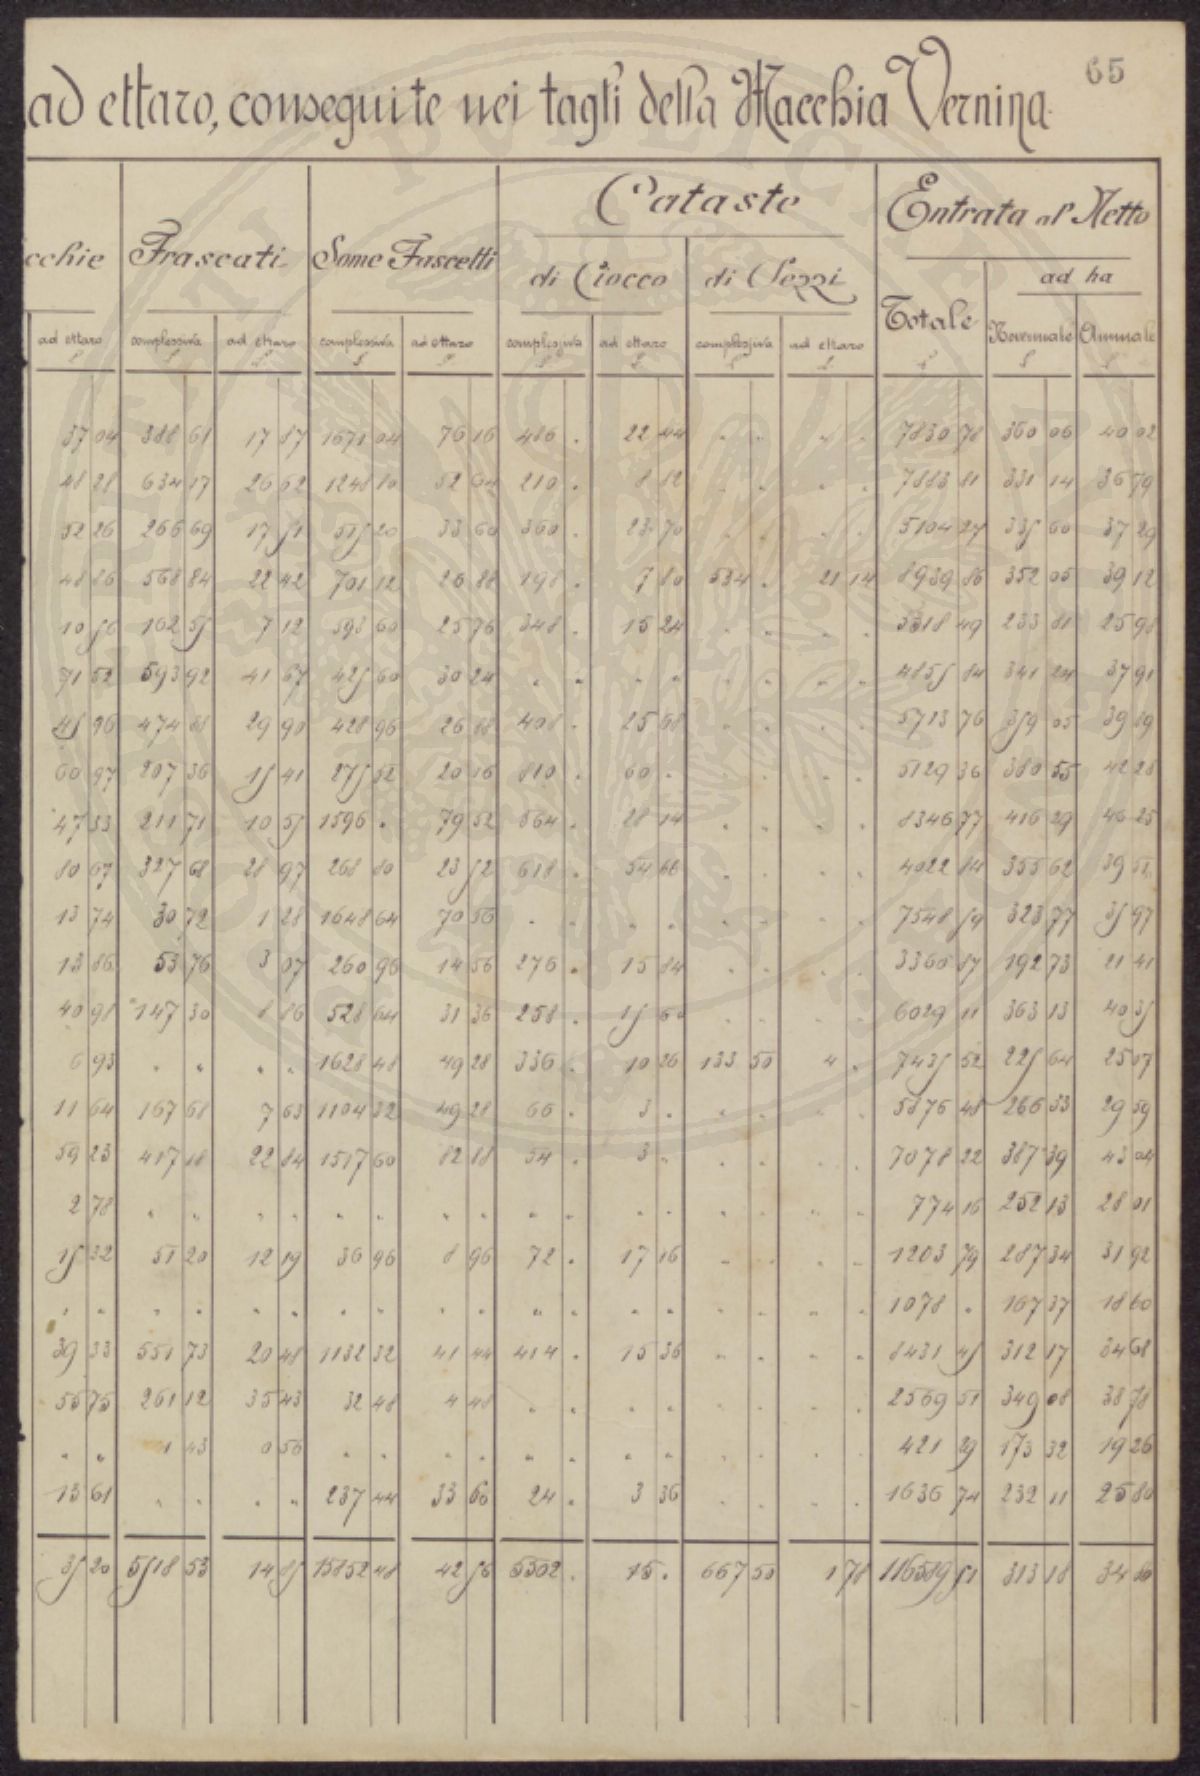 65
ad ettaro, conseguite nei tagli della Macchia Vernina.
Cataste Entrata al Netto
cchie Frascati Some Fascetti di Ciocco di Pezzi Totale ad ha
ad ettaro complessiva ad ettaro complessiva ad ettaro complessiva ad ettaro complessiva ad ettaro Novennale Annuale
37 04 388 61 17 87 1671 04 76 16 486 . 22 44 . . . . 7830 78 360 06 40 02
48 28 634 17 26 62 1248 80 52 64 210 . 8 82 . . . . 7883 81 331 14 36 79
52 26 266 69 17 51 515 20 33 60 360 . 23 70 . . . . 5104 27 335 60 37 29
48 26 568 84 22 42 701 12 26 88 198 . 7 80 534 . 21 14 8939 86 352 05 39 12
10 56 162 55 7 12 593 60 25 76 348 . 15 24 . . . . 5318 49 233 81 25 98
71 52 593 92 41 67 425 60 30 24 . . . . . . . . 4855 84 341 24 37 91
45 96 474 88 29 90 428 96 26 88 408 . 25 68 . . . . 5713 76 359 05 39 89
60 97 207 36 15 41 275 52 20 16 810 . 60 . . . . . 5129 36 380 55 42 28
47 53 211 71 10 55 1596 . 79 52 564 . 28 14 . . . . 8346 77 416 29 46 25
80 67 327 68 28 97 268 80 23 52 618 . 54 66 . . . . 4022 84 355 62 39 51
13 74 30 72 1 28 1648 64 70 56 . . . . . . . . 7548 59 323 77 35 97
13 86 53 76 3 07 260 96 14 56 276 . 15 84 . . . . 3360 87 192 73 21 41
40 98 147 30 8 86 528 64 31 36 258 . 15 60 . . . . 6029 11 363 13 40 35
6 93 . . . . 1628 48 49 28 336 . 10 26 133 50 4 . 7435 52 225 64 25 07
11 64 167 68 7 63 1104 32 49 28 66 . 3 . . . . . 5876 48 266 33 29 59
59 23 417 18 22 84 1517 60 82 88 54 . 3 . . . . . 7078 22 387 39 43 04
2 78 . . . . . . . . . . . . . . . . 774 16 252 13 28 01
15 32 51 20 12 19 36 96 8 96 72 . 17 16 . . . . 1203 79 287 34 31 92
. . . . . . . . . . . . . . . . . . 1078 . 167 37 18 60
39 33 551 73 20 48 1132 32 41 44 414 . 15 36 . . . . 8431 45 312 17 34 68
55 75 261 12 35 43 32 48 4 48 . . . . . . . . 2569 51 349 08 38 78
. . 1 43 0 56 . . . . . . . . . . . . 421 29 173 32 19 26
13 61 . . . . 237 44 33 60 24 . 3 36 . . . . 1636 74 232 11 25 80
35 20 5518 53 14 85 15852 48 42 56 5502 . 15 . 667 50 1 78 116589 51 313 18 34 80